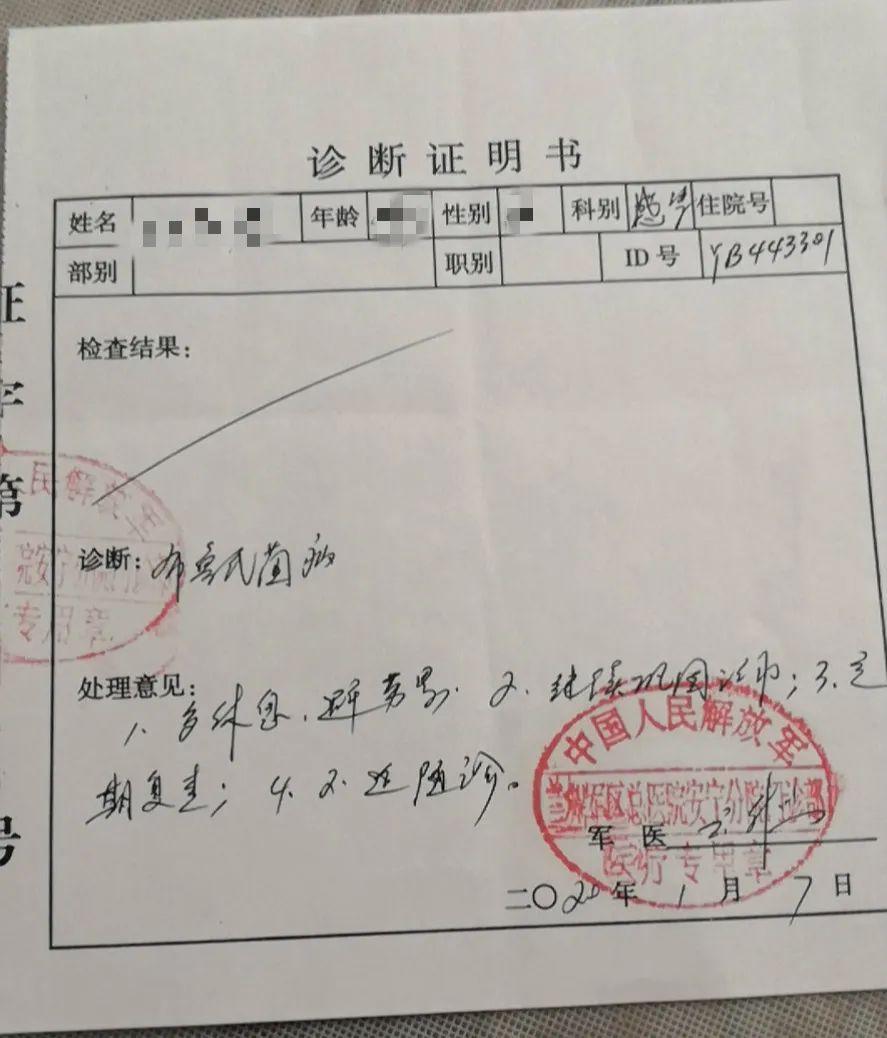 诊断证明书
姓名 年龄 性别 科别 感染 住院号
部别 职别 ID号 YB443301
检查结果:
诊断: 布鲁氏菌病
处理意见:
1、多休息、避劳累、2、继续巩固治疗; 3、定
期复查; 4、不适随诊。
中国人民解放军
区总医院安宁分院
军医
医疗专用章
二〇20年1月7日
证
字
第
号
民解放军
专用章